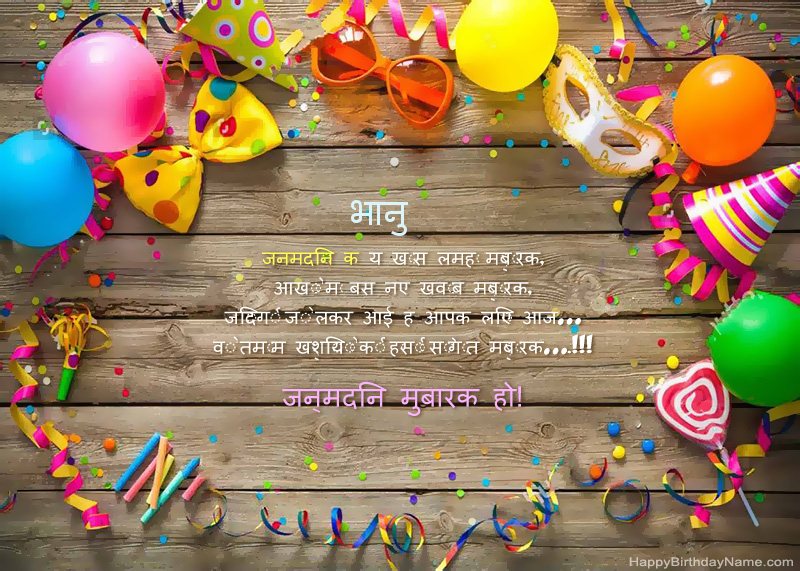 भानु
जनमदिन क य खास लमह मबारक,
आखों म बस नए खवाब मबारक,
जिदगी जो लकर आई ह आपक लिए आज...
वो तमाम खशियों की हसीं सौगात मबारक....!!!
जन्मदिन मुबारक हो!
HappyBirthdayName.com